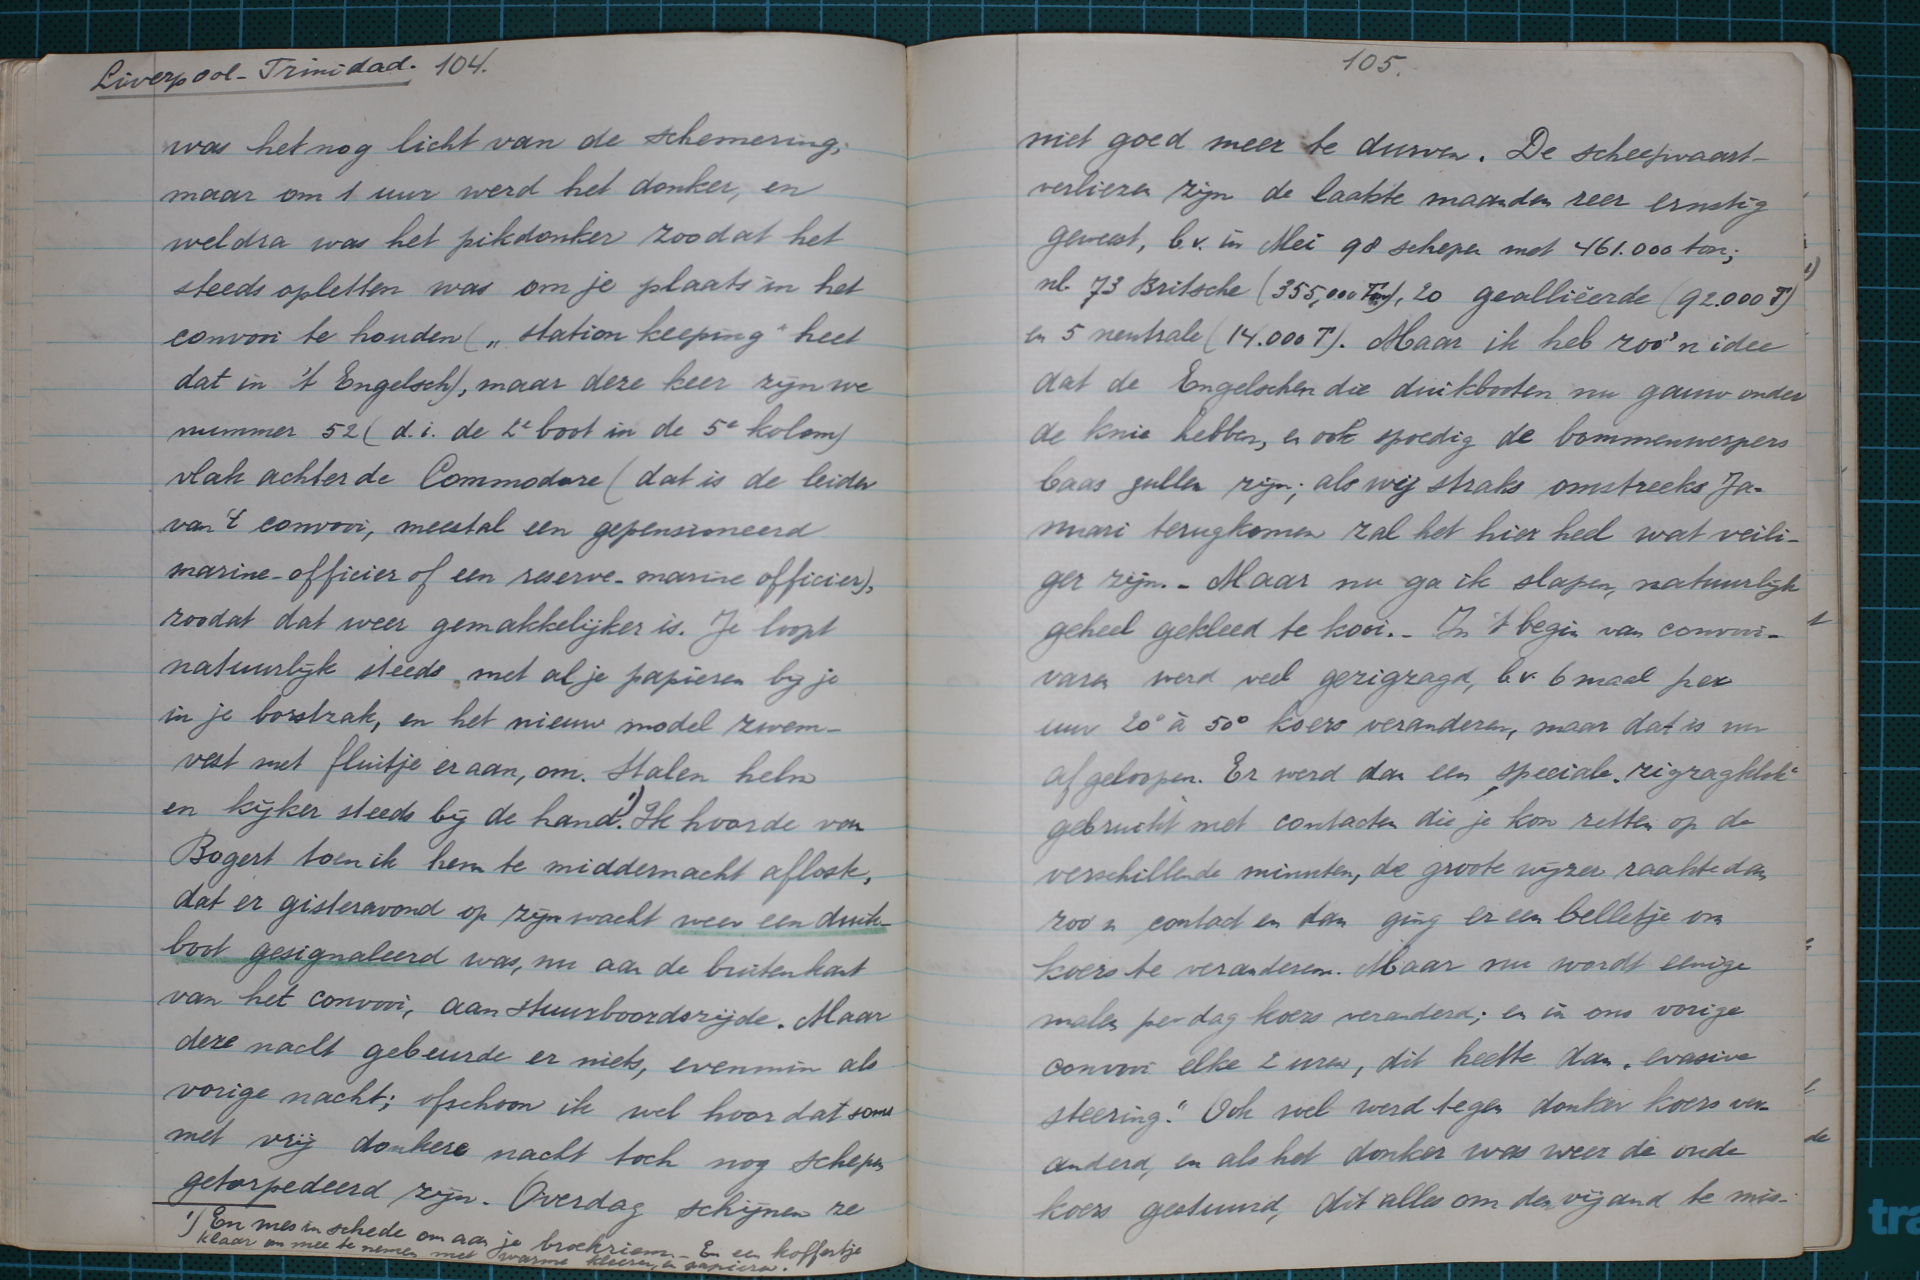 Liverpool - Trinidad. 104.
was het nog licht van de schemering,
maar om 1 uur werd het donker, en
weldra was het pikdonker zoodat het
steeds opletten was om je plaats in het
convooi te houden („station keeping" heet
dat in 't Engelsch), maar deze keer zijn we
nummer 52 (d.i. de 2e boot in de 5e kolom)
vlak achter de Commodore (dat is de leider
van 't convooi, meestal een gepensioneerd
marine-officier of een reserve-marine officier),
zoodat dat weer gemakkelijker is. Je loopt
natuurlijk steeds met al je papieren bij je
in je borstzak, en het nieuw model zwem-
vest met fluitje eraan, om. Stalen helm
en kijker steeds bij de hand.¹) Ik hoorde van
Bogert toen ik hem te middernacht afloste,
dat er gisteravond op zijn wacht weer een duik-
boot gesignaleerd was, nu aan de buitenkant
van het convooi, aan stuurboordszijde. Maar
deze nacht gebeurde er niets, evenmin als
vorige nacht; ofschoon ik wel hoor dat soms
met vrij donkere nacht toch nog schepen
getorpedeerd zijn. Overdag schijnen ze
¹) En mes in schede om aan je broekriem. - En een koffertje
klaar om mee te nemen met warme kleeren, en papieren.
105.
niet goed meer te durven. De scheepvaart-
verliezen zijn de laatste maanden zeer ernstig
geweest, b.v. in Mei 98 schepen met 461.000 ton;
nl 73 Britsche (355,000 Ton), 20 geallieerde (92.000 T)
en 5 neutrale (14.000 T). Maar ik heb zoo'n idee
dat de Engelschen die duikbooten nu gauw onder
de knie hebben, en ook spoedig de bommenwerpers
baas zullen zijn; als wij straks omstreeks Ja-
nuari terugkomen zal het hier heel wat veili-
ger zijn. - Maar nu ga ik slapen, natuurlijk
geheel gekleed te kooi. - In 't begin van convooi-
varen werd veel gezigzagd, b.v. 6 maal per
uur 20° à 50° koers veranderen, maar dat is nu
afgeloopen. Er werd dan een speciale „zigzagklok"
gebruikt met contacten die je kon zetten op de
verschillende minuten, de groote wijzer raakte dan
zoo'n contact en dan ging er een belletje om
koers te veranderen. Maar nu wordt eenige
malen per dag koers veranderd; en in ons vorige
convooi elke 2 uren, dit heette dan „evasive
steering." Ook wel werd tegen donker koers ver-
anderd, en als het donker was weer de oude
koers gestuurd, dit alles om den vijand te mis-